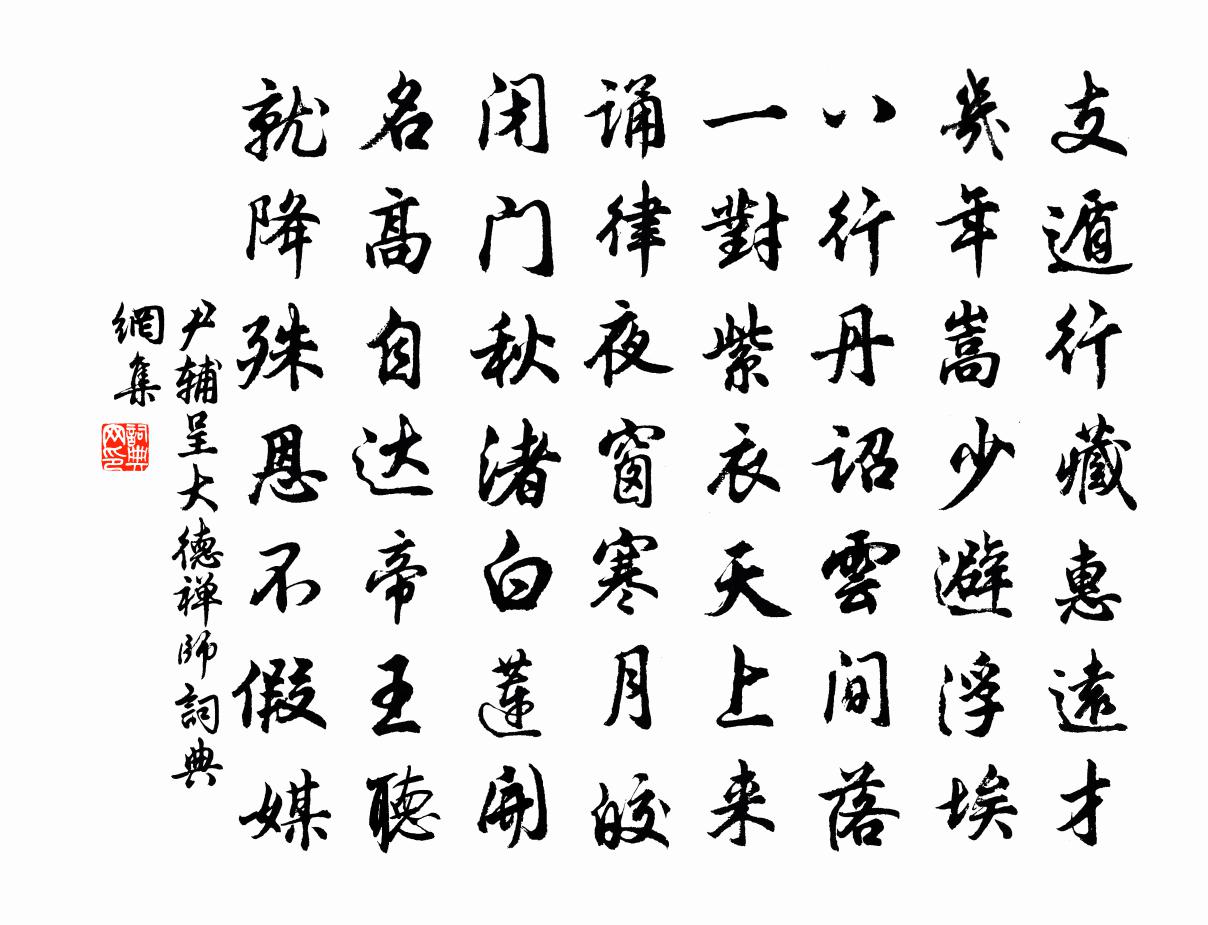 支遁行藏惠遠才
幾年嵩少避浮埃
八行丹詔雲間落
一對紫衣天上来
誦律夜窗寒月皎
闭门秋渚白蓮開
名高自达帝王聽
就降殊恩不假媒
尹辅呈大德禅師詞典
網集
詞典
网印